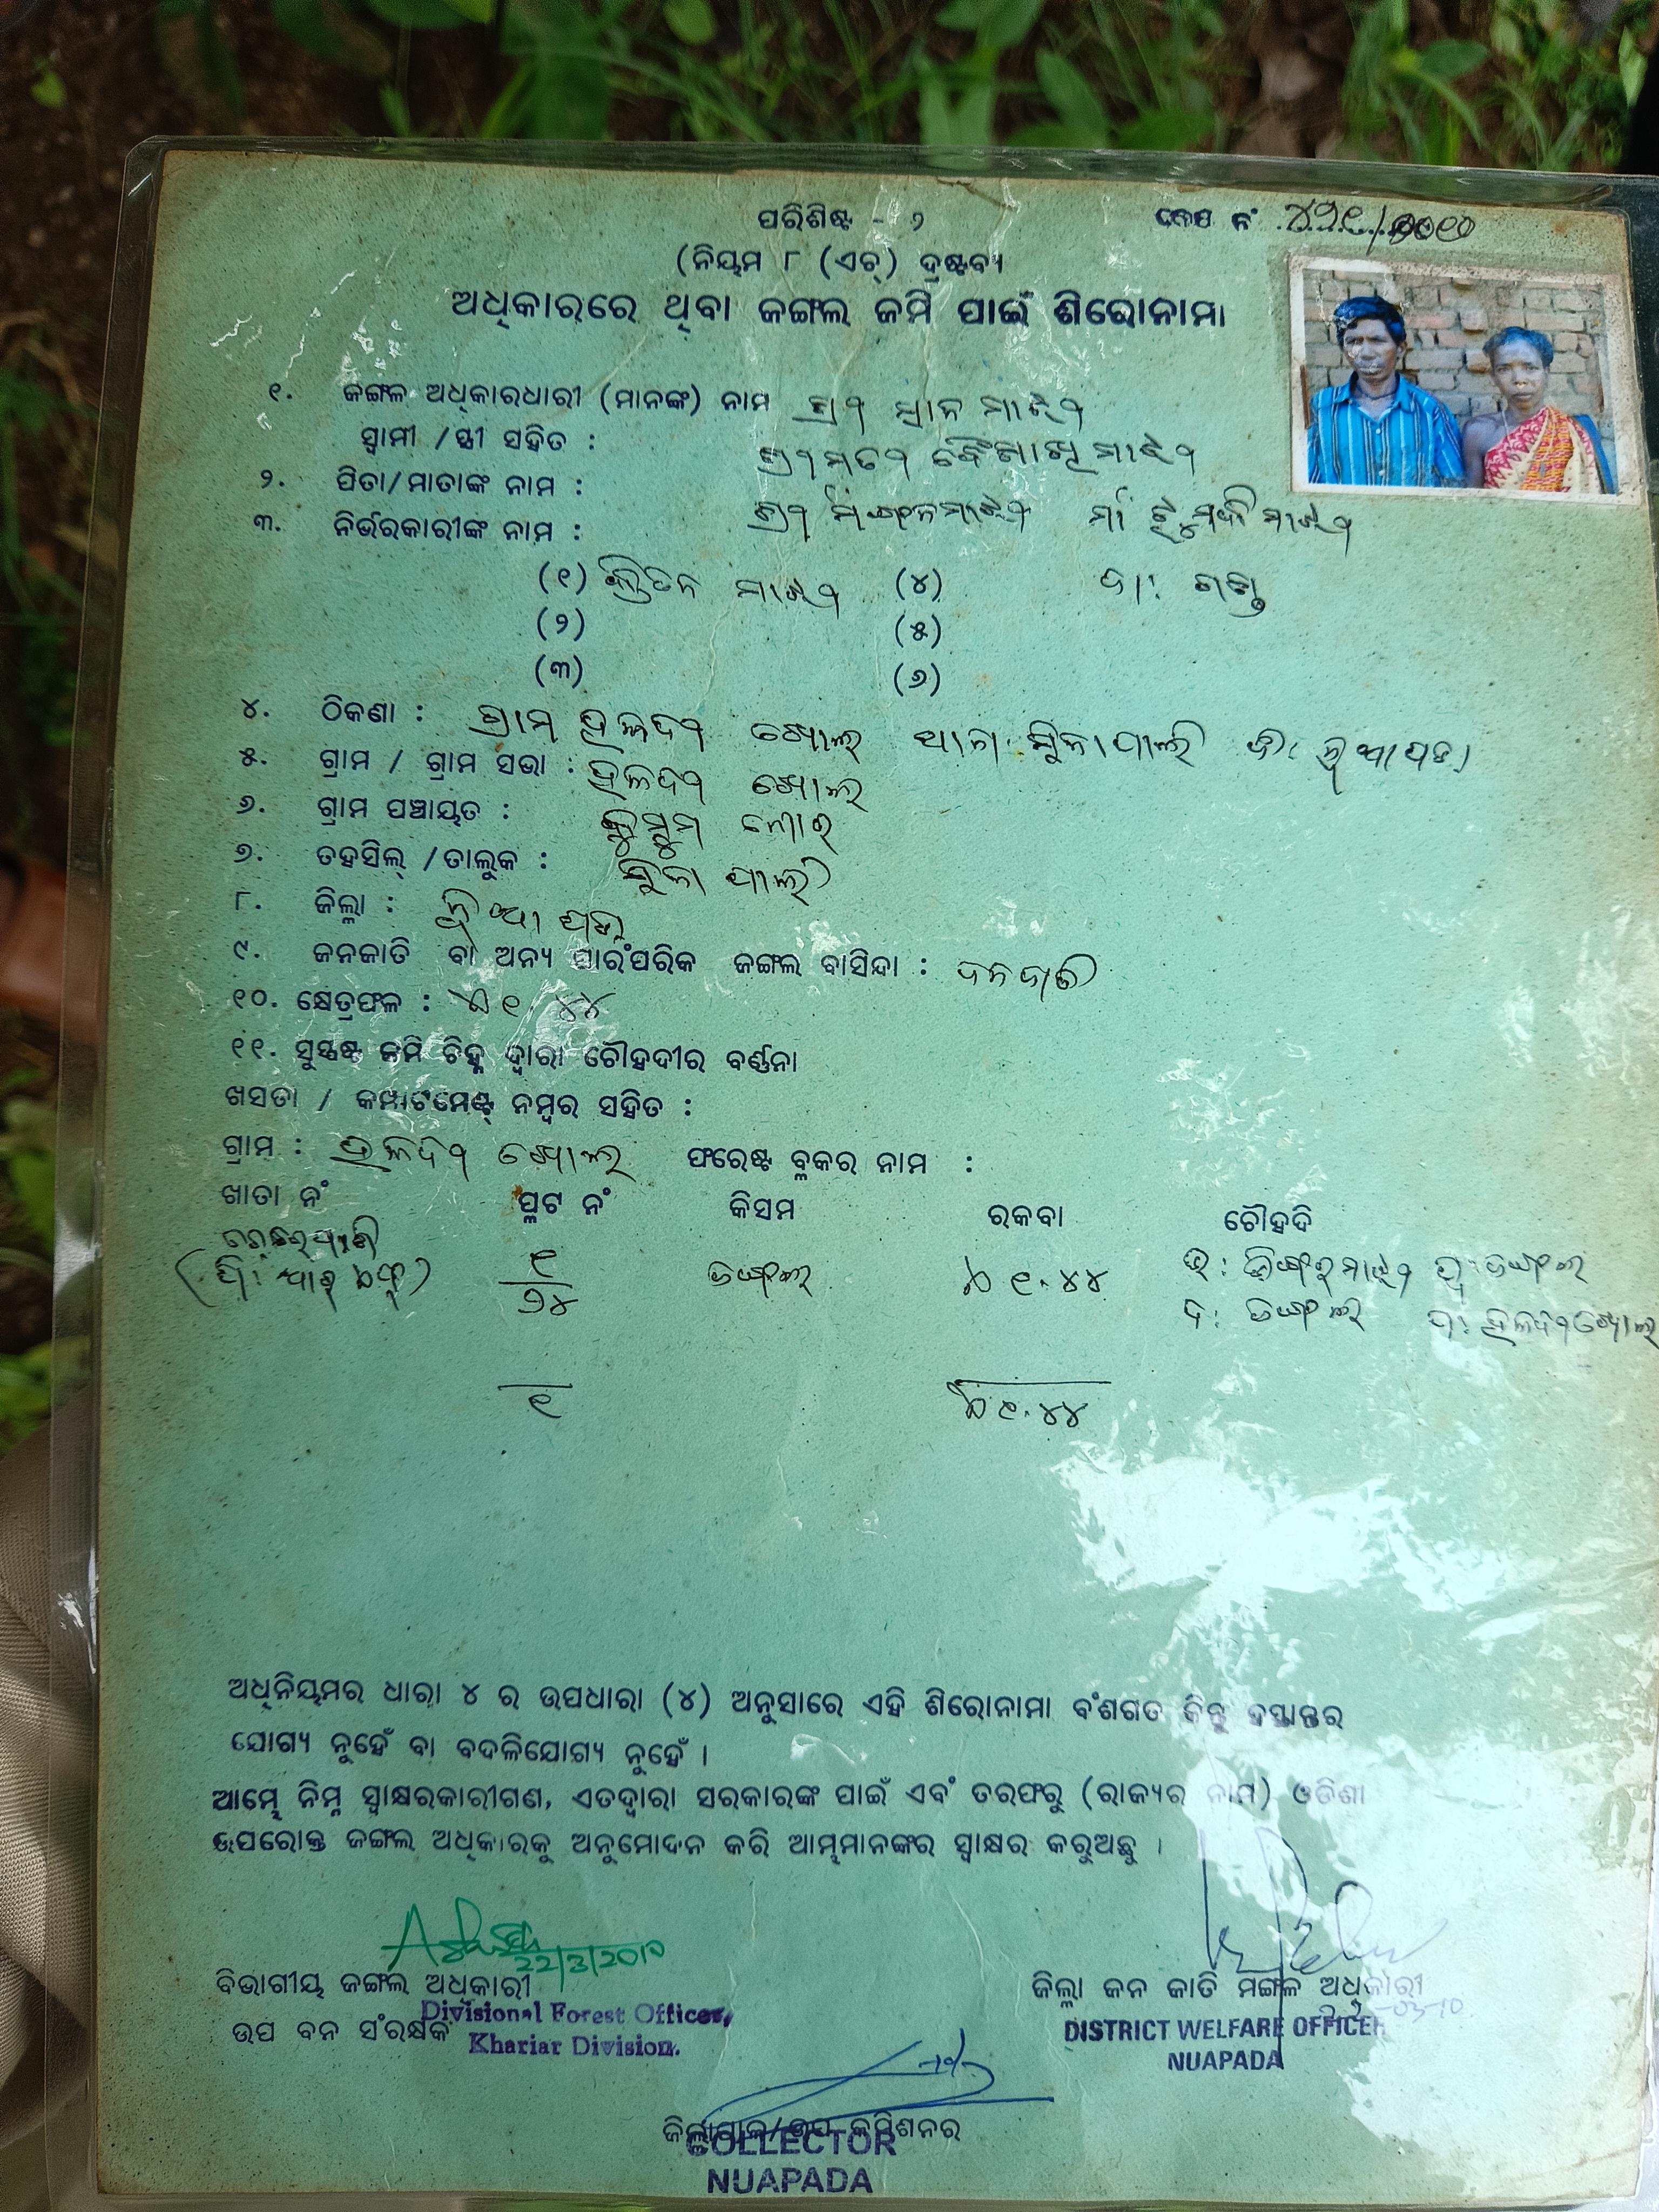 ପରିଶିଷ୍ଟ - ୬
କେସ ନଂ
(ନିୟମ ୮ (ଏଚ୍) ଦ୍ରଷ୍ଟବ୍ୟ
ଅଧିକାରରେ ଥିବା ଜଙ୍ଗଲ ଜମି ପାଇଁ ଶିରୋନାମା
୧. ଜଙ୍ଗଲ ଅଧିକାରଧାରୀ (ମାନଙ୍କ) ନାମ ମାଝୀ
ସ୍ୱାମୀ /ସ୍ତ୍ରୀ ସହିତ : ଶ୍ରୀମତୀ ବୈଶାଖି ମାଝୀ
୨. ପିତା/ମାତାଙ୍କ ନାମ : ମାଝୀ ମାଝୀ
୩. ନିର୍ଭରକାରୀଙ୍କ ନାମ :
(୧) ମାଝୀ (୪)
(୨) (୫)
(୩) (୬)
୪. ଠିକଣା : ଗ୍ରାମ ହଳଦୀ ଖୋଲ ଥାନା ସିନାପାଲି ଜି: ନୂଆପଡା
୫. ଗ୍ରାମ / ଗ୍ରାମ ସଭା : ହଳଦୀ ଖୋଲ
୬. ଗ୍ରାମ ପଞ୍ଚାୟତ :
୭. ତହସିଲ୍ /ତାଲୁକ : ସିନା ପାଲି
୮. ଜିଲ୍ଲା : ନୂଆପଡା
୯. ଜନଜାତି ବା ଅନ୍ୟ ପାରଂପରିକ ଜଙ୍ଗଲ ବାସିନ୍ଦା : ଜନଜାତି
୧୦. କ୍ଷେତ୍ରଫଳ : ୧.୪୪
୧୧. ସୁସ୍ପଷ୍ଟ ଜମି ଚିହ୍ନ ଦ୍ୱାରା ଚୌହଦୀର ବର୍ଣ୍ଣନା
ଖସଡା / କମ୍ପାଟମେଣ୍ଟ୍ ନମ୍ବର ସହିତ :
ଗ୍ରାମ : ହଳଦୀ ଖୋଲ ଫରେଷ୍ଟ ବ୍ଳକର ନାମ :
ଖାତା ନଂ ପ୍ଳଟ ନଂ କିସମ ରକବା ଚୌହଦି
୧ ଜଙ୍ଗଲ ୧.୪୪ ମାଝୀ ପୂ: ଜଙ୍ଗଲ
୭୪ ଦ: ଜଙ୍ଗଲ ପ: ହଳଦୀଖୋଲ
୧ ୧.୪୪
ଅଧିନିୟମର ଧାରା ୪ ର ଉପଧାରା (୪) ଅନୁସାରେ ଏହି ଶିରୋନାମା ବଂଶଗତ କିନ୍ତୁ ହସ୍ତାନ୍ତର
ଯୋଗ୍ୟ ନୁହେଁ ବା ବଦଳିଯୋଗ୍ୟ ନୁହେଁ ।
ଆମ୍ଭେ ନିମ୍ନ ସ୍ୱାକ୍ଷରକାରୀଗଣ, ଏତଦ୍ୱାରା ସରକାରଙ୍କ ପାଇଁ ଏବଂ ତରଫରୁ (ରାଜ୍ୟର ନାମ) ଓଡିଶା
ଉପରୋକ୍ତ ଜଙ୍ଗଲ ଅଧିକାରକୁ ଅନୁମୋଦନ କରି ଆମ୍ଭମାନଙ୍କର ସ୍ୱାକ୍ଷର କରୁଅଛୁ ।
22/3/2010
ବିଭାଗୀୟ ଜଙ୍ଗଲ ଅଧିକାରୀ
Divisional Forest Officer,
ଉପ ବନ ସଂରକ୍ଷକ
Khariar Division.
ଜିଲ୍ଲା ଜନ ଜାତି ମଙ୍ଗଳ ଅଧିକାରୀ
DISTRICT WELFARE OFFICER
NUAPADA
ଜିଲ୍ଲାପାଳ/ଉପ କମିଶନର
COLLECTOR
NUAPADA